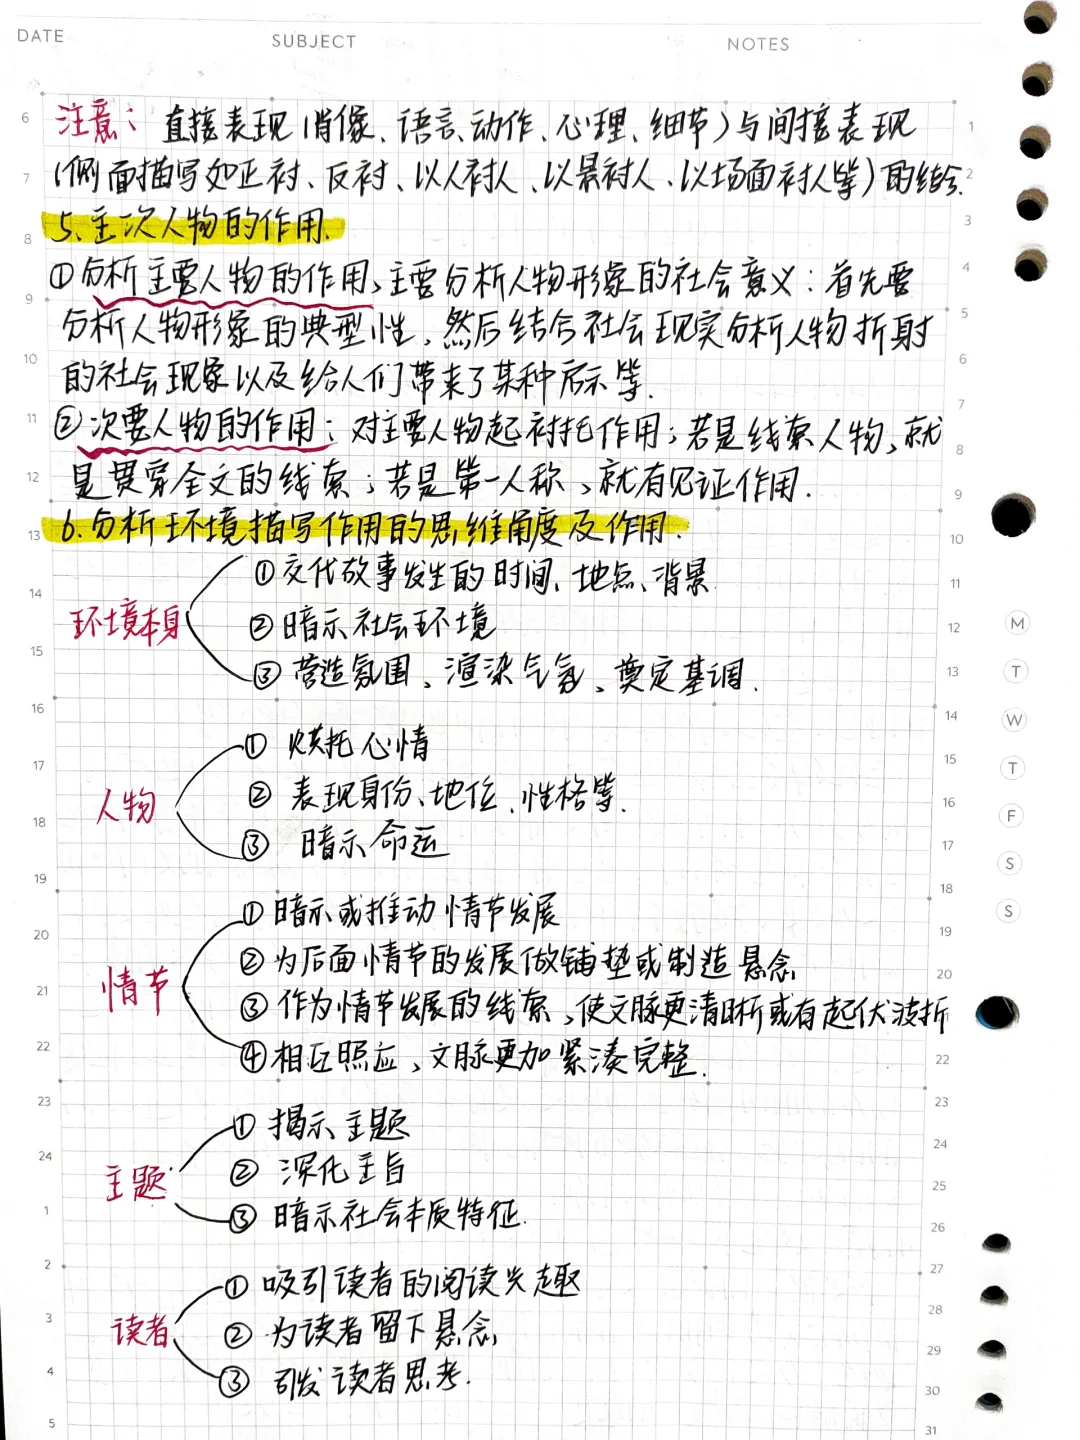 DATE SUBJECT NOTES
注意： 直接表现(肖像、语言、动作、心理、细节)与间接表现
(侧面描写如正衬、反衬、以人衬人、以景衬人、以场面衬人等)的结合.
5、主次人物的作用.
①分析主要人物的作用、主要分析人物形象的社会意义：首先要
分析人物形象的典型性，然后结合社会现实分析人物折射
的社会现象以及给人们带来了某种启示等.
②次要人物的作用：对主要人物起衬托作用；若是线索人物，就
是贯穿全文的线索；若是第一人称，就有见证作用.
6.分析环境描写作用的思维角度及作用.
环境本身
①交代故事发生的时间、地点、背景
②暗示社会环境
③营造氛围、渲染气氛、奠定基调.
人物
① 烘托心情
② 表现身份、地位、性格等.
③ 暗示命运
情节
①暗示或推动情节发展
②为后面情节的发展做铺垫或制造悬念
③作为情节发展的线索、使文脉更清晰或有起伏波折
④相互照应，文脉更加紧凑完整.
主题
① 揭示主题
② 深化主旨
③ 暗示社会本质特征.
读者
① 吸引读者的阅读兴趣
② 为读者留下悬念
③ 引发读者思考.
6 7 8 9 10 11 12 13 14 15 16 17 18 19 20 21 22 23 24 1 2 3 4 5
1 2 3 4 5 6 7 8 9 10 11 12 13 14 15 16 17 18 19 20 22 23 24 25 26 27 28 29 30 31
M
T
W
T
F
S
S